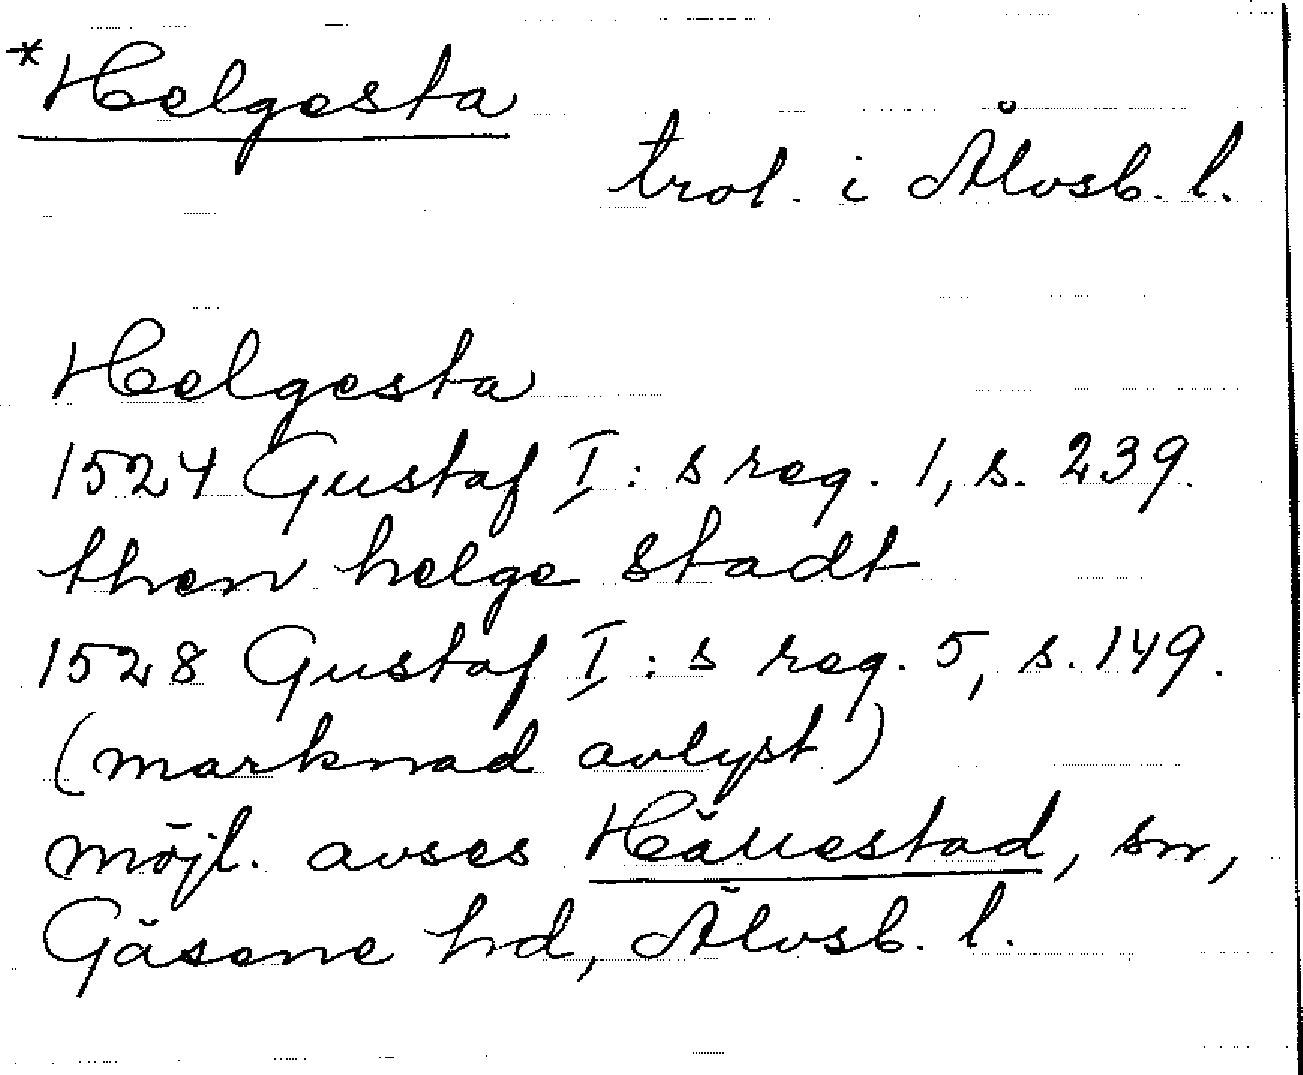 *Helgesta
trol. i Älvsb. l.
Helgesta
1524 Gustaf I:s reg. 1, s. 239.
then helge stadt
1528 Gustaf I:s reg. 5, s. 149.
(marknad avlyst)
möjl. avses Hällestad, sn,
Gäsene hd, Älvsb. l.